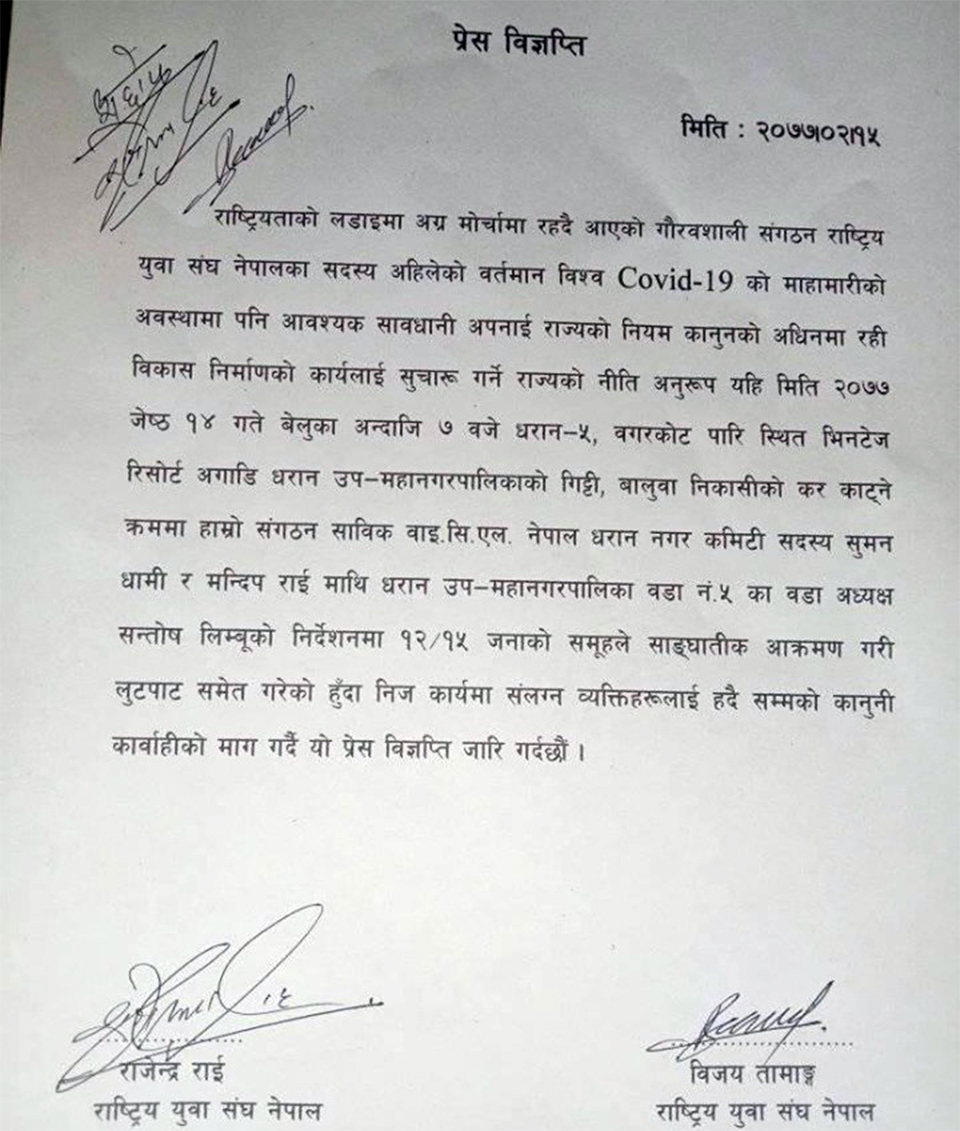 प्रेस विज्ञप्ति
मिति : २०७७।०२।१५
राष्ट्रियताको लडाइमा अग्र मोर्चामा रहदै आएको गौरवशाली संगठन राष्ट्रिय
युवा संघ नेपालका सदस्य अहिलेको वर्तमान विश्व Covid-19 को माहामारीको
अवस्थामा पनि आवश्यक सावधानी अपनाई राज्यको नियम कानुनको अधिनमा रही
विकास निर्माणको कार्यलाई सुचारू गर्ने राज्यको नीति अनुरूप यहि मिति २०७७
जेष्ठ १४ गते बेलुका अन्दाजि ७ वजे धरान–५, वगरकोट पारि स्थित भिनटेज
रिसोर्ट अगाडि धरान उप–महानगरपालिकाको गिट्टी, बालुवा निकासीको कर काट्ने
क्रममा हाम्रो संगठन साविक वाइ.सि.एल. नेपाल धरान नगर कमिटी सदस्य सुमन
धामी र मन्दिप राई माथि धरान उप–महानगरपालिका वडा नं.५ का वडा अध्यक्ष
सन्तोष लिम्बूको निर्देशनमा १२/१५ जनाको समूहले साङ्घातीक आक्रमण गरी
लुटपाट समेत गरेको हुँदा निज कार्यमा संलग्न व्यक्तिहरूलाई हदै सम्मको कानुनी
कार्वाहीको माग गर्दै यो प्रेस विज्ञप्ति जारि गर्दछौं ।
राजेन्द्र राई
राष्ट्रिय युवा संघ नेपाल
विजय तामाङ्ग
राष्ट्रिय युवा संघ नेपाल